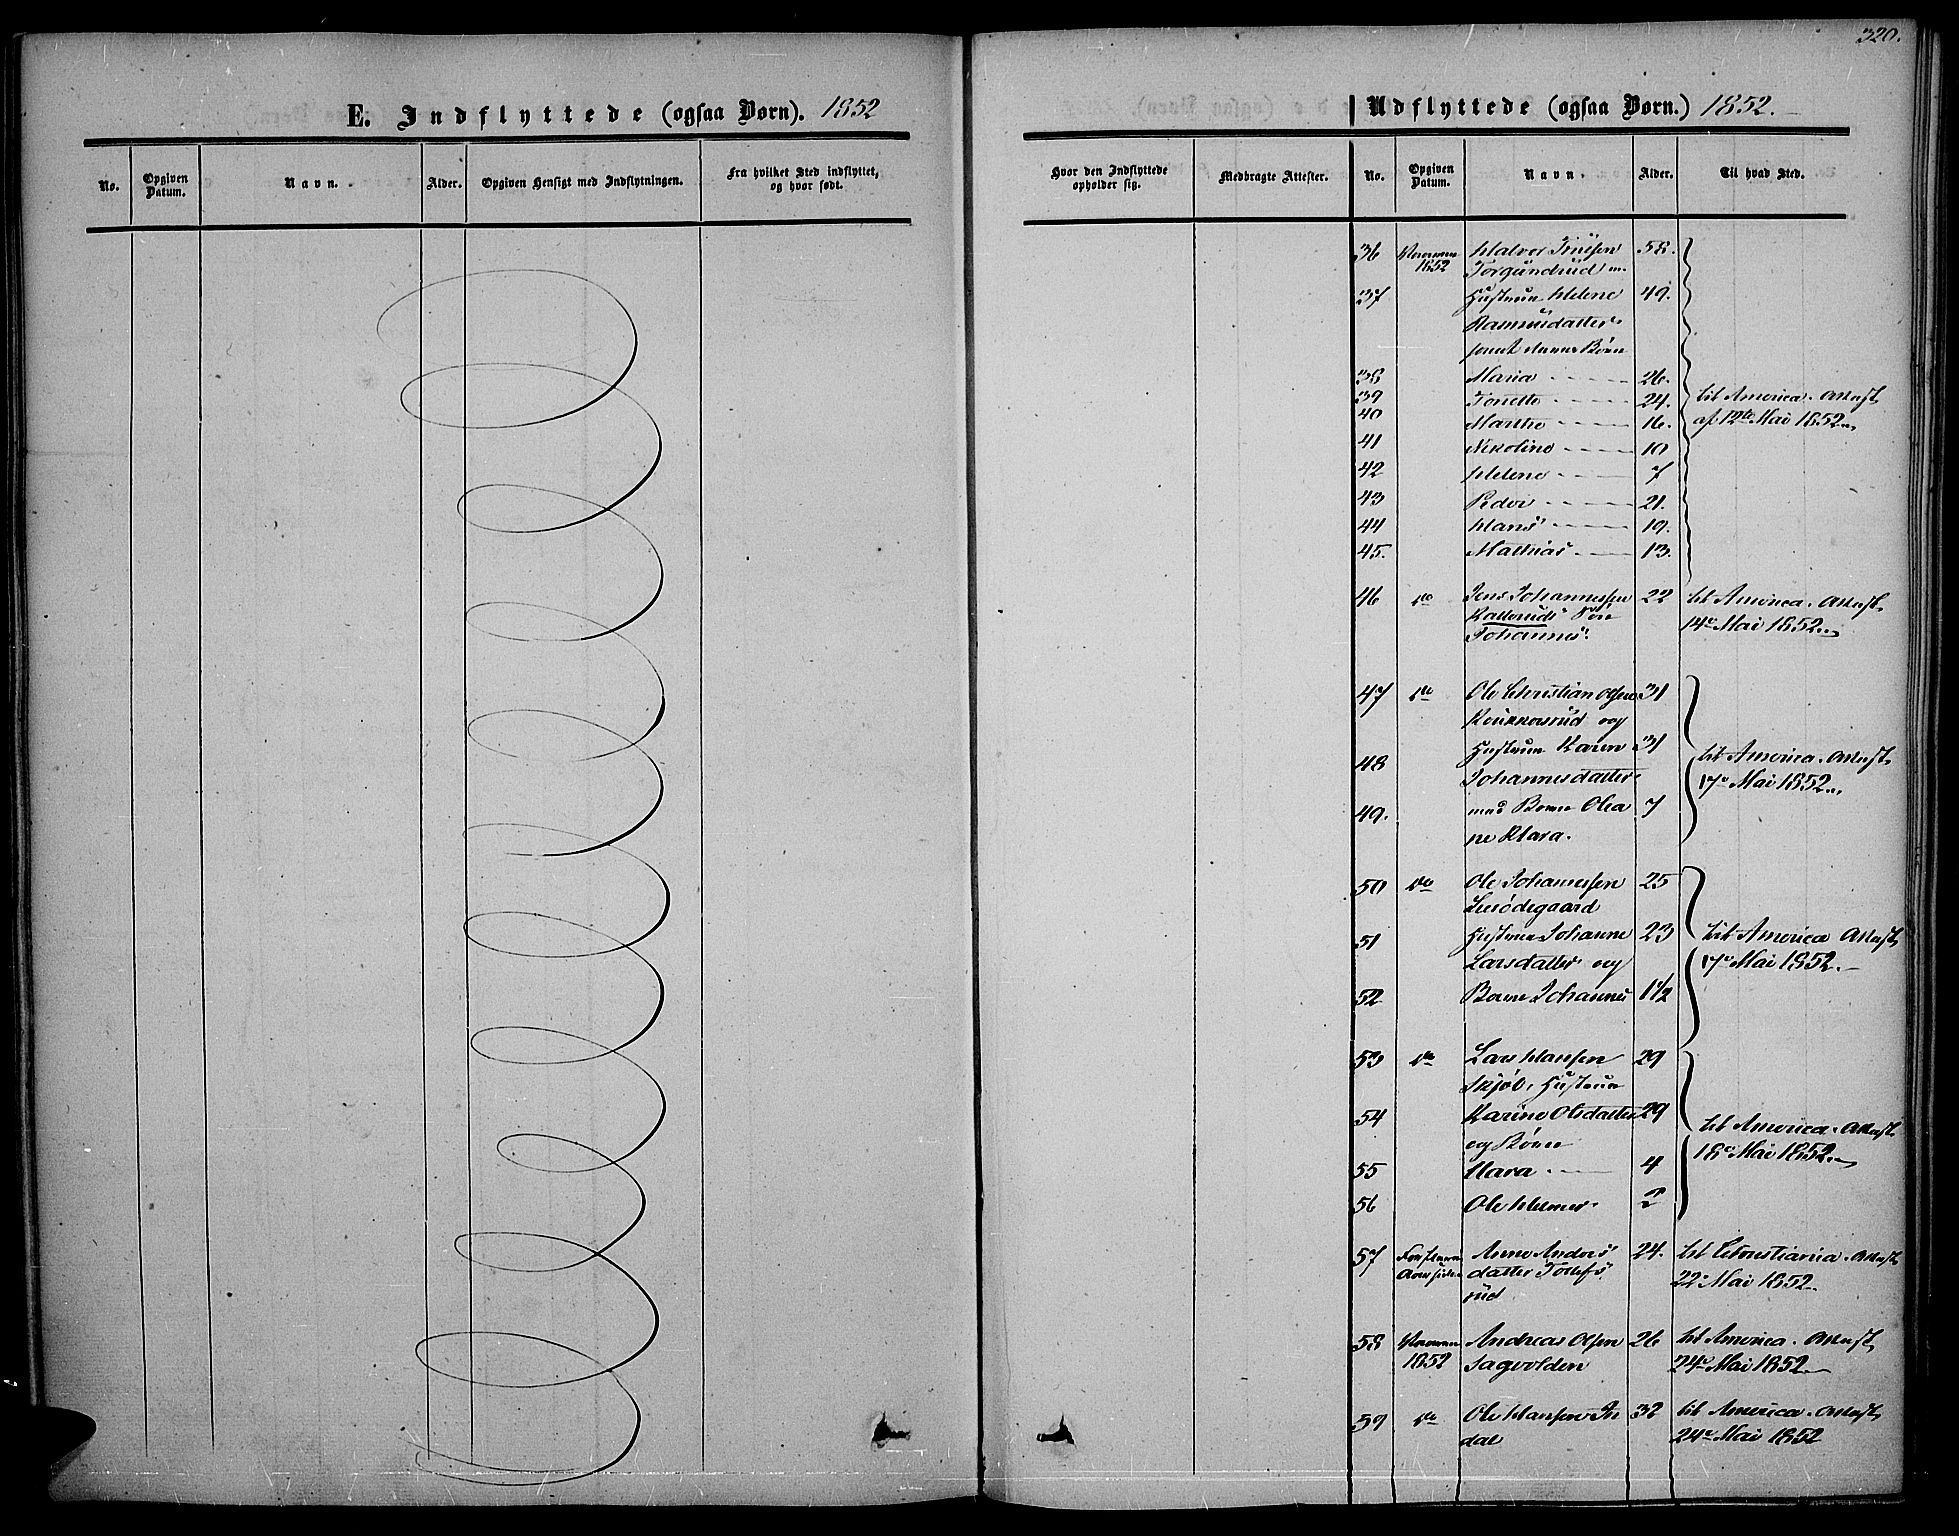 320.
E. Indflyttede (ogsaa Børn). 1852
No.
Opgiven Datum.
Navn.
Alder.
Opgiven Hensigt med Indflytningen.
Fra hvilket Sted indflyttet, og hvor født.
Udflyttede (ogsaa Børn.) 1852.
Hvor den Indflyttede opholder sig.
Medbragte Attester.
No.
Opgiven Datum.
Navn.
Alder.
Til hvad Sted.
36 1852 Halvor 58.
Torgundrud m.
37 Hustrue Helene 49.
samt denne Børn
38 Maria 26.
39 24.
40 Marthe 16.
41 Nicoline 10
42 Helene 7
43 Peder 21.
44 Hans 19.
45. Mathias 13.
til America. Attest
af 12te Mai 1852
46 do Jens Johannessen 22 til America. Attest
14e Mai 1852
Johannes.
47 do Ole Christian Olsen 31
og
48 Hustrue Karen 31
Johannesdatter
49. med Barn Olea 7
ne Klara.
til America. Attest
17e Mai 1852
50 do Ole Johannessen 25
51 Hustrue Johanne 23
Larsdatter og
52 Barn Johannes 1½
til America Attest
17e Mai 1852.
53 do Lars Hansen 29
Hustrue
54 Karine Olsdatter 29
og Børn
55 Klara 4
56 Ole Helmer 2
til America. Attest
18e Mai 1852.
57 Anne Anders 24. til Christiania Attest
datter Tollefs 22e Mai 1852.
rud
58 1852 Andreas Olsen 26 til America. Attest
Sagvolden 24e Mai 1852.
59 do Ole Hansen 32 til America. Attest
dal 24e Mai 1852